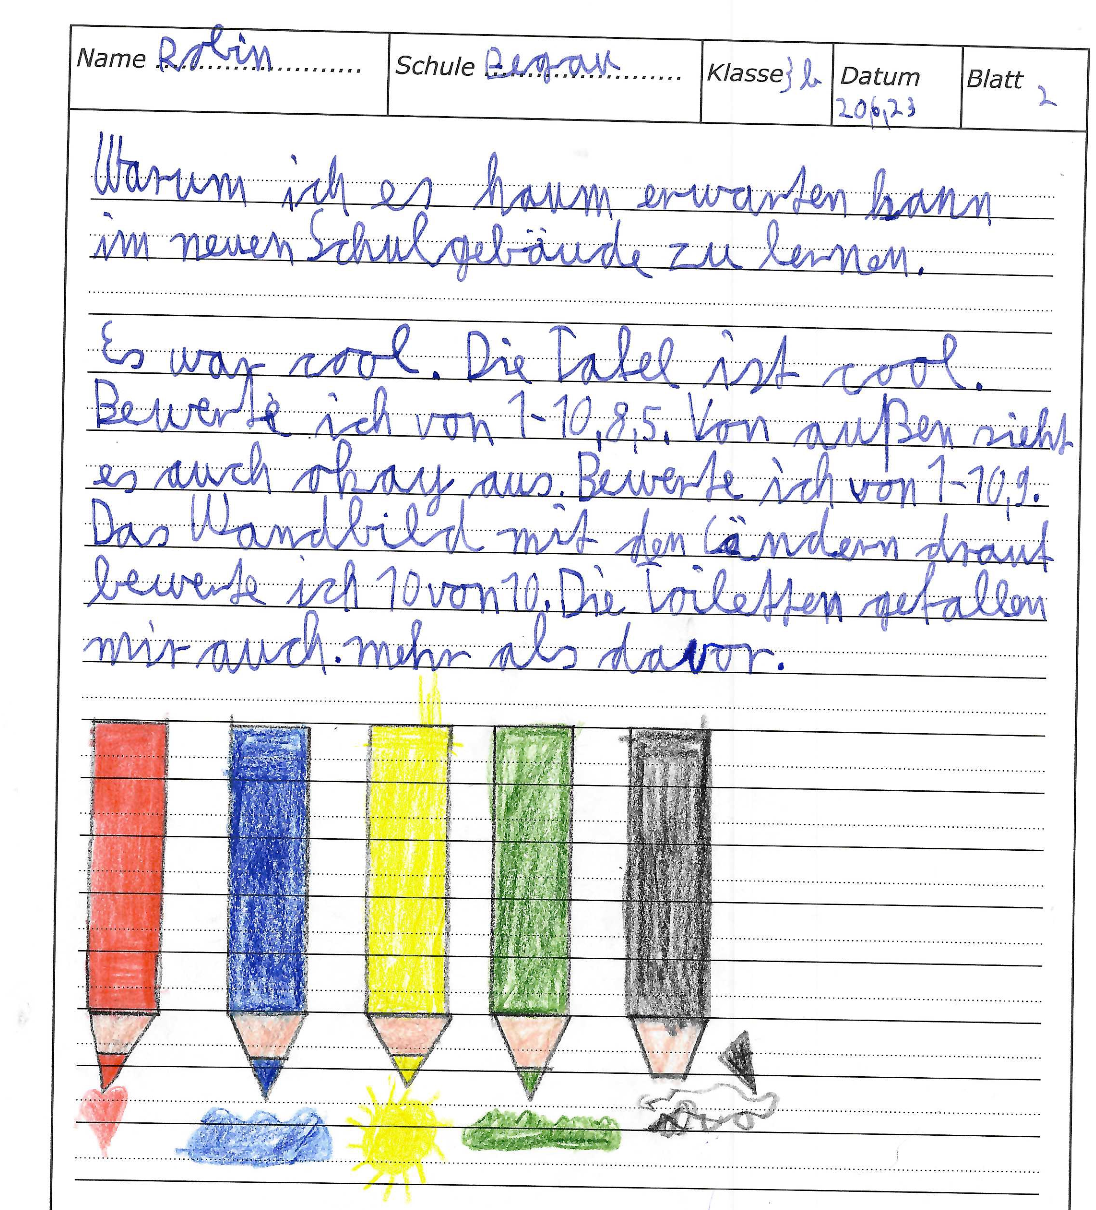 Name Robin Schule Begau Klasse 3b Datum 20.6.23 Blatt 2
Warum ich es kaum erwarten kann
im neuen Schulgebäude zu lernen.
Es war cool. Die Tafel ist cool.
Bewerte ich von 1-10, 8,5. Von außen sieht
es auch okay aus. Bewerte ich von 1-10, 9.
Das Wandbild mit den Ländern drauf
bewerte ich 10 von 10. Die Toiletten gefallen
mir auch. mehr als davor.